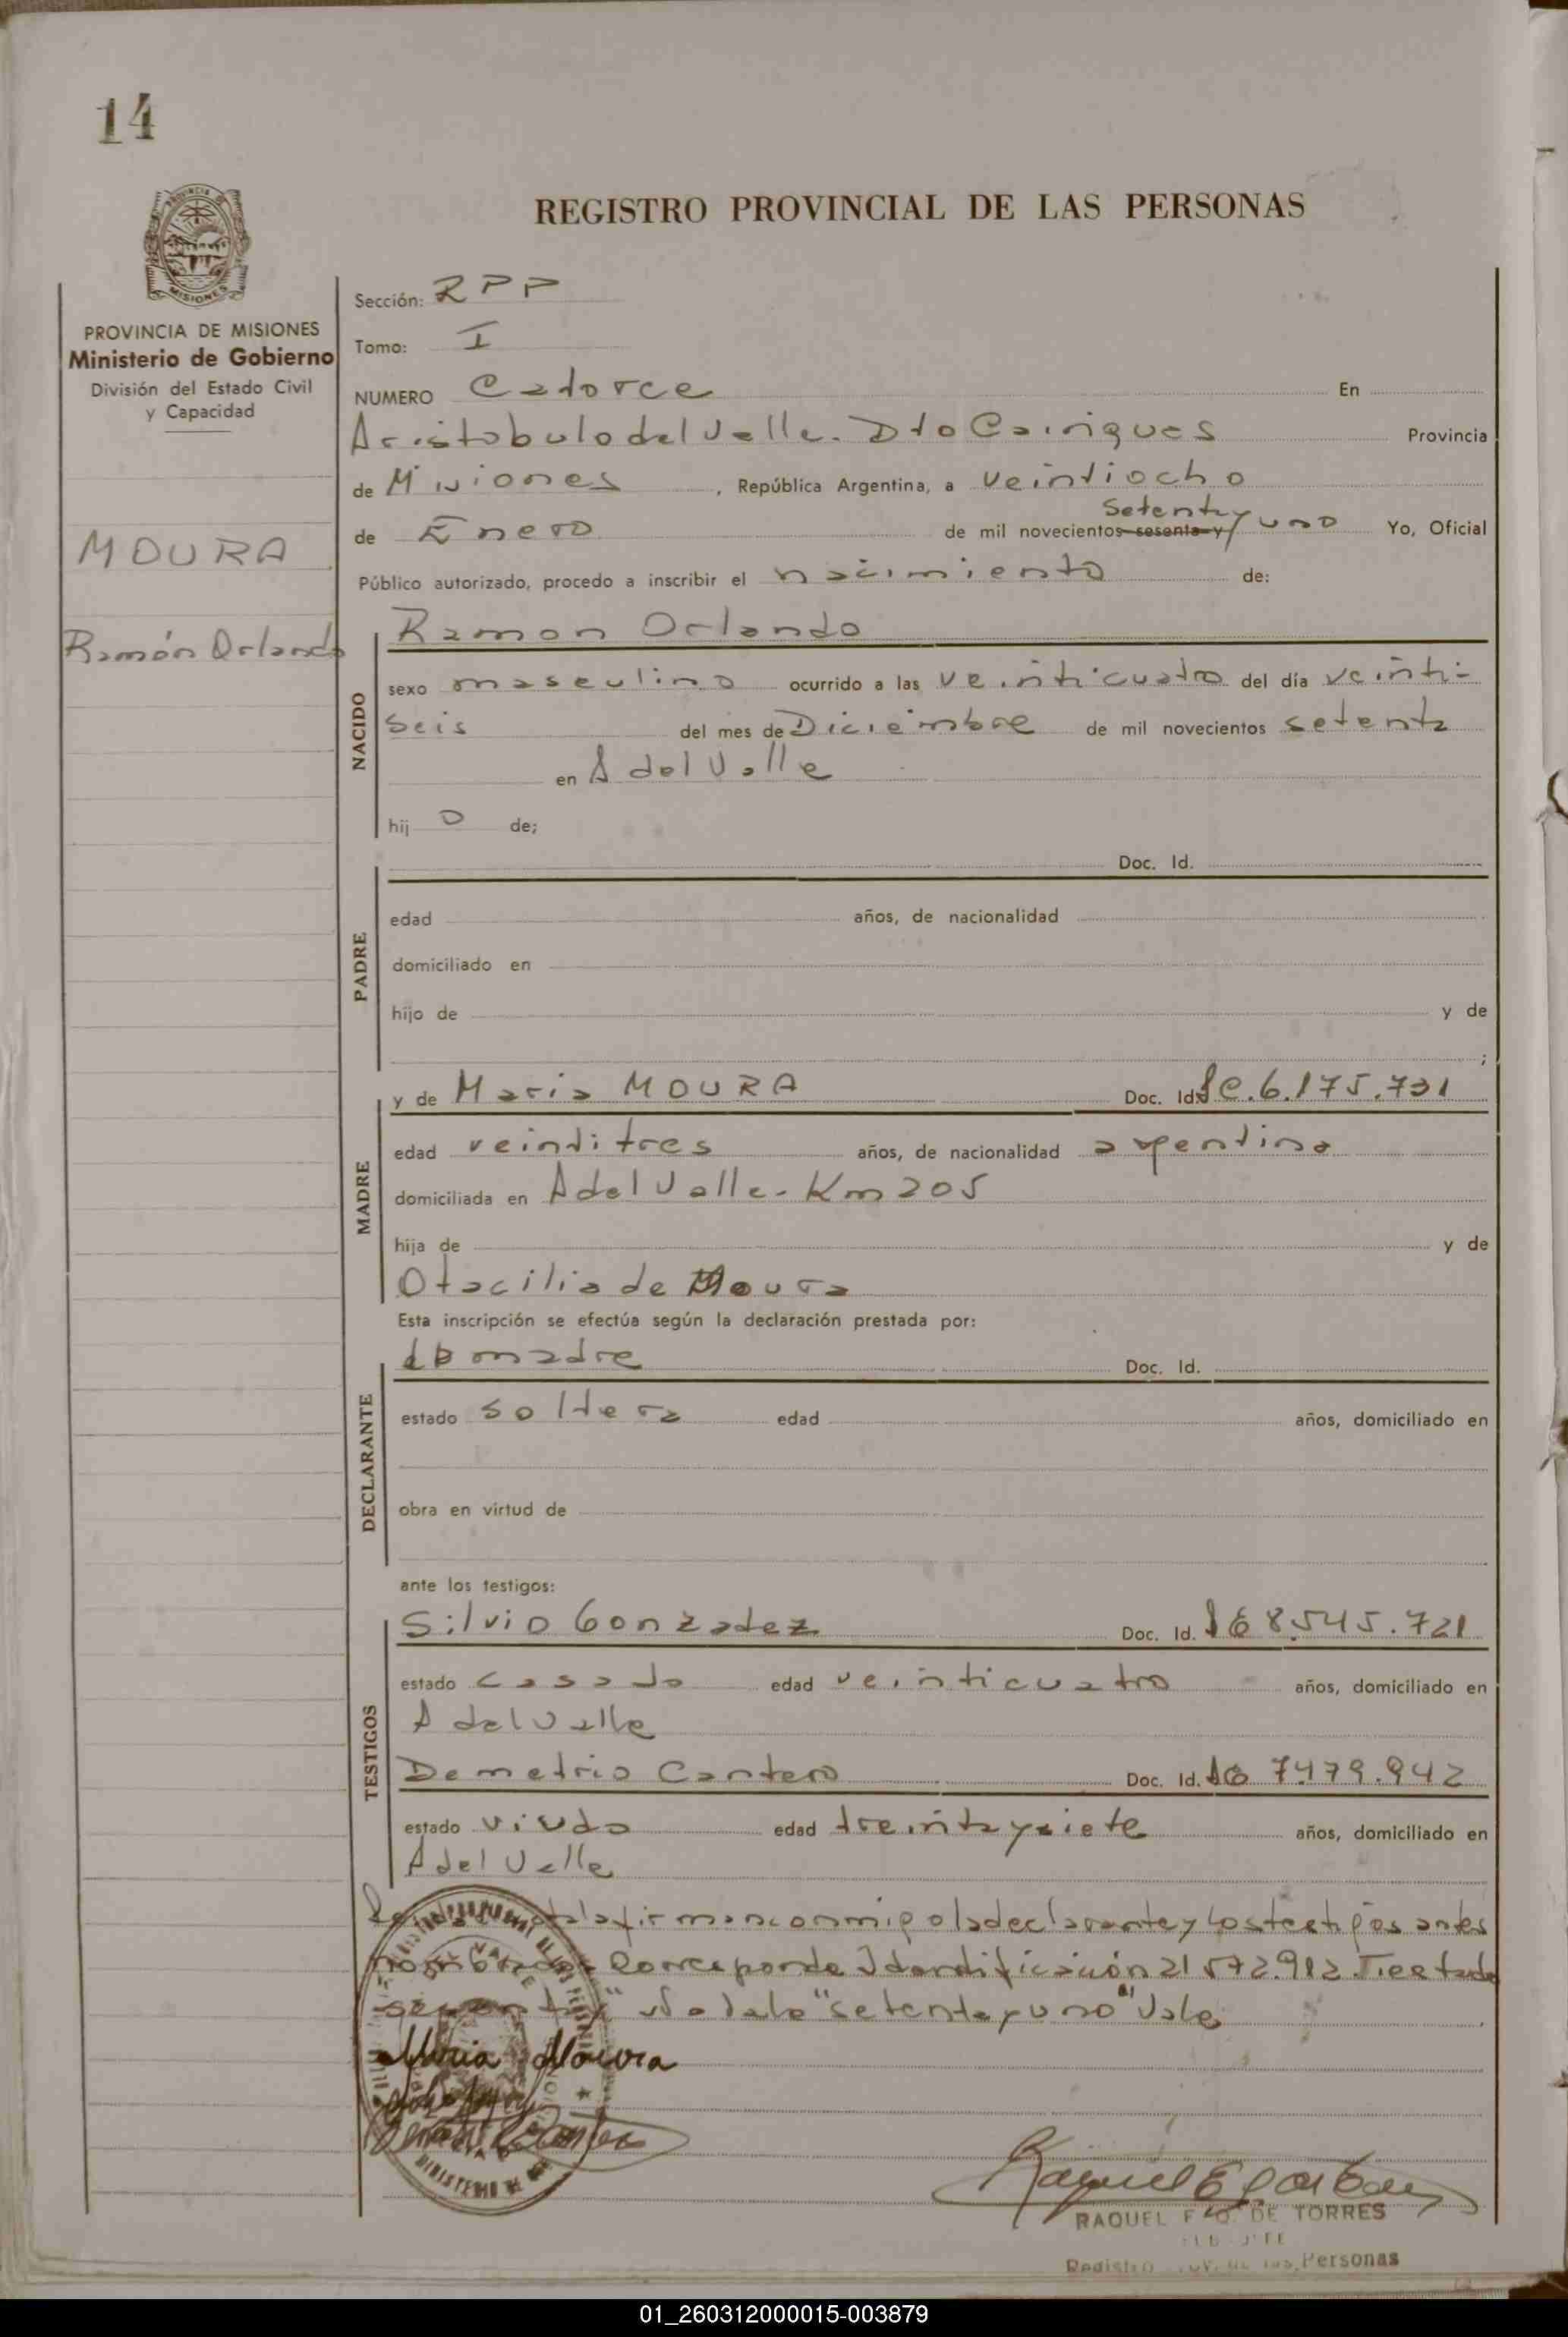 14
REGISTRO PROVINCIAL DE LAS PERSONAS
PROVINCIA DE MISIONES
Ministerio de Gobierno
División del Estado Civil
y Capacidad
MOURA
Ramón Orlando
Sección: RPP
Tomo: I
NUMERO Catorce En
Aristobulo del Valle. Dto Cainguas Provincia
de Misiones, República Argentina, a veintiocho
setenta y uno
de Enero de mil novecientos sesenta y Yo, Oficial
Público autorizado, procedo a inscribir el nacimiento de:
NACIDO
Ramon Orlando
sexo masculino ocurrido a las veinticuatro del día veinti-
seis del mes de Diciembre de mil novecientos setenta
en A del Valle
hij o de;
PADRE
Doc. Id.
edad años, de nacionalidad
domiciliado en
hijo de y de
;
MADRE
y de Maria MOURA Doc. Id. 6.175.731
edad veintitres años, de nacionalidad argentina
domiciliada en A del Valle - Km 205
hija de y de
Otacilia de Moura
Esta inscripción se efectúa según la declaración prestada por:
DECLARANTE
la madre Doc. Id.
estado soltera edad años, domiciliado en
obra en virtud de
ante los testigos:
TESTIGOS
Silvio Gonzalez Doc. Id. 8.545.721
estado casado edad veinticuatro años, domiciliado en
A del Valle
Demetrio Cantero Doc. Id. 7.479.942
estado viudo edad treinta y siete años, domiciliado en
A del Valle
firman conmigo la declarante y los testigos antes
nombrados Corresponde Identificación 21.572.912. Testado
"setenta y uno" Vale
Maria Moura
RAQUEL F DE TORRES
Registro de las Personas
01_260312000015-003879